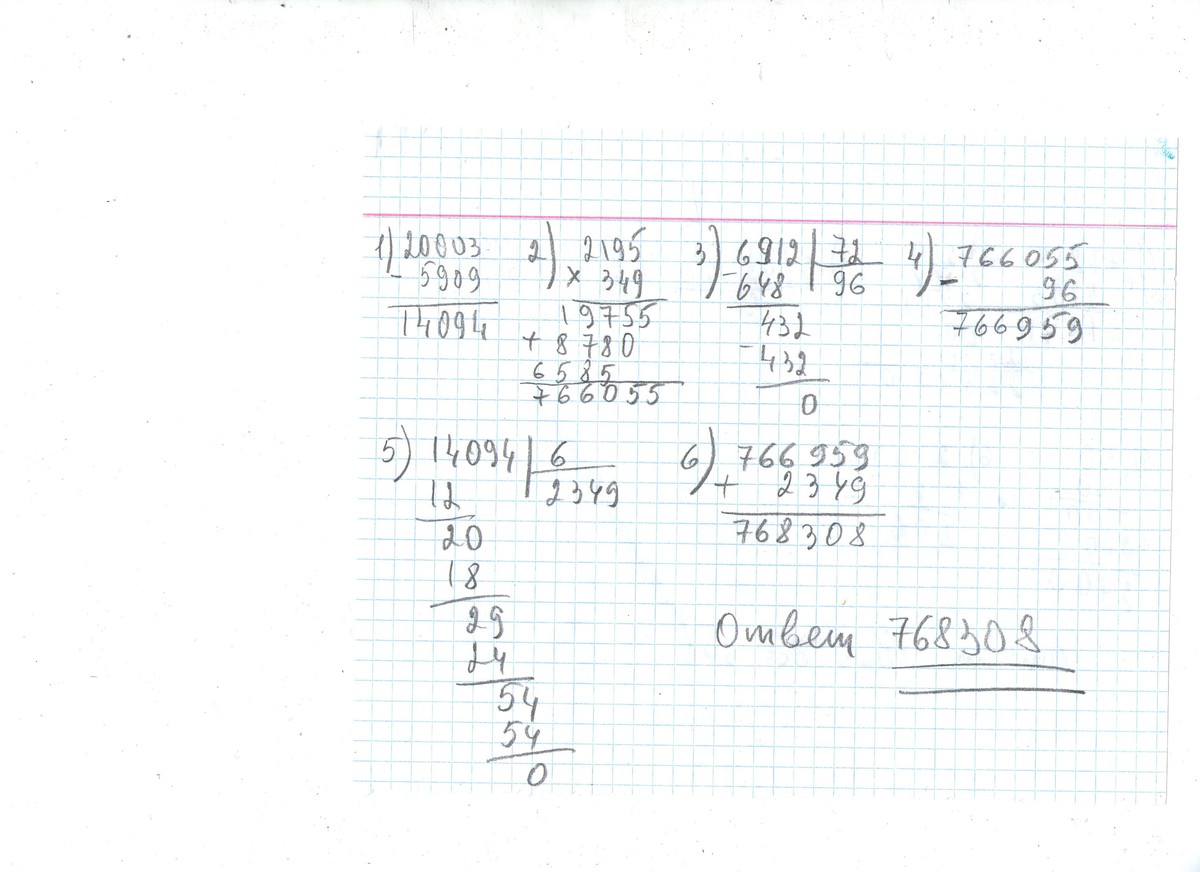 1) 20003
- 5909
14094
2) 2195
× 349
19755
+ 8780
6585
766055
3) 6912 | 72
- 648 96
432
- 432
0
4) 766055
- 96
766959
5) 14094 | 6
12 2349
20
18
29
24
54
54
0
6) 766959
+ 2349
768308
Ответ 768308